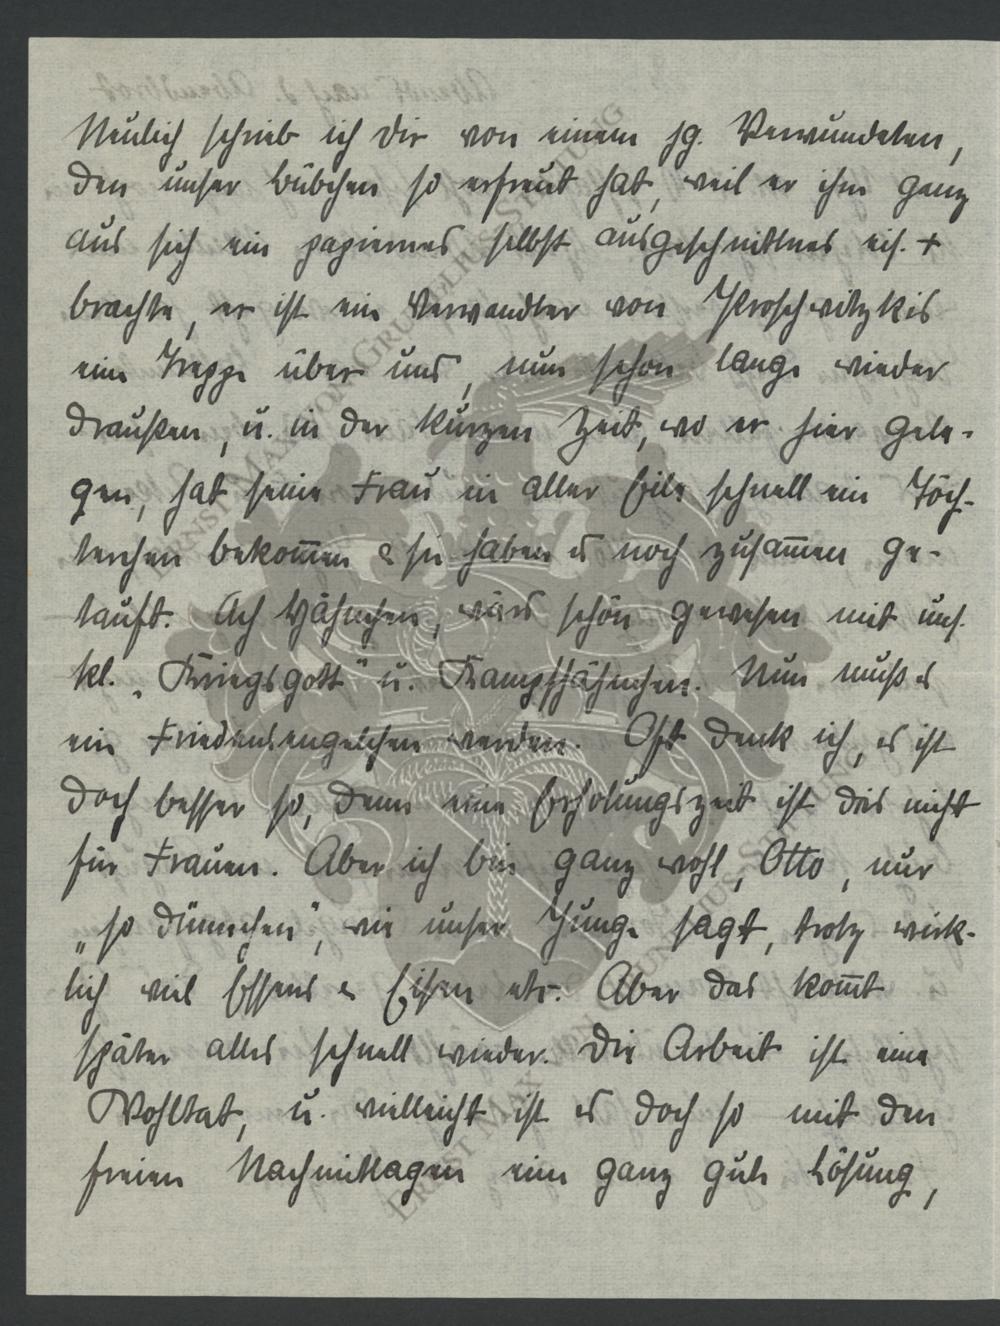 Neulich schrieb ich Dir von einem jg. Verwundeten,
den unser Bübchen so erfreut hat, weil er ihm ganz
aus sich ein papiernes selbst ausgeschnittnes eis. +
brachte, er ist ein Verwandter von Proschwitzkis
eine Treppe über uns, nun schon lange wieder
draußen, u. in der kurzen Zeit, wo er hier gele-
gen, hat seine Frau in aller Eile schnell ein Töch-
terchen bekom̅en & sie haben es noch zusam̅en ge-
tauft. Ach Hähnchen, wärs schön gewesen mit uns.
kl. „Kriegsgott" u. Kampfhähnchen. Nun muß es
ein Friedensengelchen werden. Oft denk ich, es ist
doch besser so, denn eine Erholungszeit ist dies nicht
für Frauen. Aber ich bin ganz wohl, Otto, nur
„so dünnchen", wie unser Junge sagt, trotz wirk-
lich viel Essens & Eisen etc. Aber das kom̅t
später alles schnell wieder. Die Arbeit ist eine
Wohltat, u. vielleicht ist es doch so mit den
freien Nachmittagen eine ganz gute Lösung,
ERNST MAX VON GRUNELIUS-STIFTUNG
ERNST MAX VON GRUNELIUS-STIFTUNG